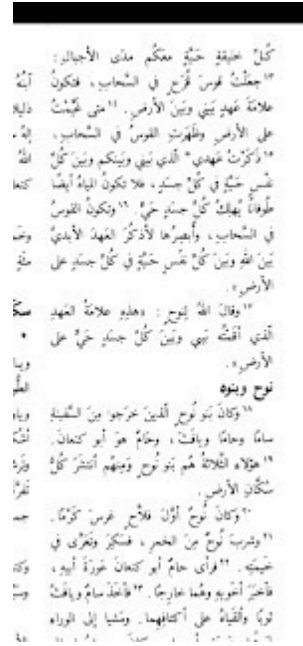 كُلِّ خليقةٍ حَيَّةٍ معَكُم مدَى الأجيالِ:
١٣جعَلْتُ قوسَ قُزَحٍ في السَّحابِ، فتكونُ
علامَةَ عَهدٍ بَيني وبَينَ الأرضِ. ١٤متى غَيَّمْتُ
على الأرضِ وظَهَرَتِ القوسُ في السَّحابِ،
١٥ذكَرْتُ عَهدي الّذي بَيني وبَينَكم وبَينَ كُلِّ
نفْسٍ حَيَّةٍ في كُلِّ جسَدٍ، فلا تكونُ المياهُ أيضًا
طُوفانًا يُهلِكُ كُلَّ جسَدٍ حَيٍّ. ١٦وتكونُ القوسُ
في السَّحابِ، وأُبصِرُها لأذكُرَ العَهدَ الأبديَّ
بَينَ اللهِ وبَينَ كُلِّ نفْسٍ حَيَّةٍ في كُلِّ جسَدٍ على
الأرضِ».
١٧وقالَ اللهُ لِنوحٍ: «هذِهِ علامَةُ العَهدِ
الّذي أقَمْتُه بَيني وبَينَ كُلِّ جسَدٍ حَيٍّ على
الأرضِ».
نوح وبنوه
١٨وكانَ بَنو نُوحٍ الّذينَ خرَجوا مِنَ السَّفينةِ
سامًا وحامًا ويافَثَ، وحامٌ هوَ أبو كنعانَ.
١٩هؤلاء الثَّلاثةُ هُم بَنو نُوحٍ ومِنهُم اَنتَشَرَ كُلُّ
سُكَّانِ الأرضِ.
٢٠وكانَ نُوحٌ أوَّلَ فلاَّحٍ غرَسَ كَرْمًا.
٢١وشرِبَ نُوحٌ مِنَ الخمرِ، فسَكِرَ وتَعَرَّى في
خَيمَتِه. ٢٢فرأى حامٌ أبو كنعانَ عَورَةَ أبيهِ،
فأخبَرَ أخَوَيهِ وهُما خارِجًا. ٢٣فأخذَ سامٌ ويافَثُ
ثوبًا وألقَياهُ على أكتافِهِما. ومَشَيا إلى الوراءِ